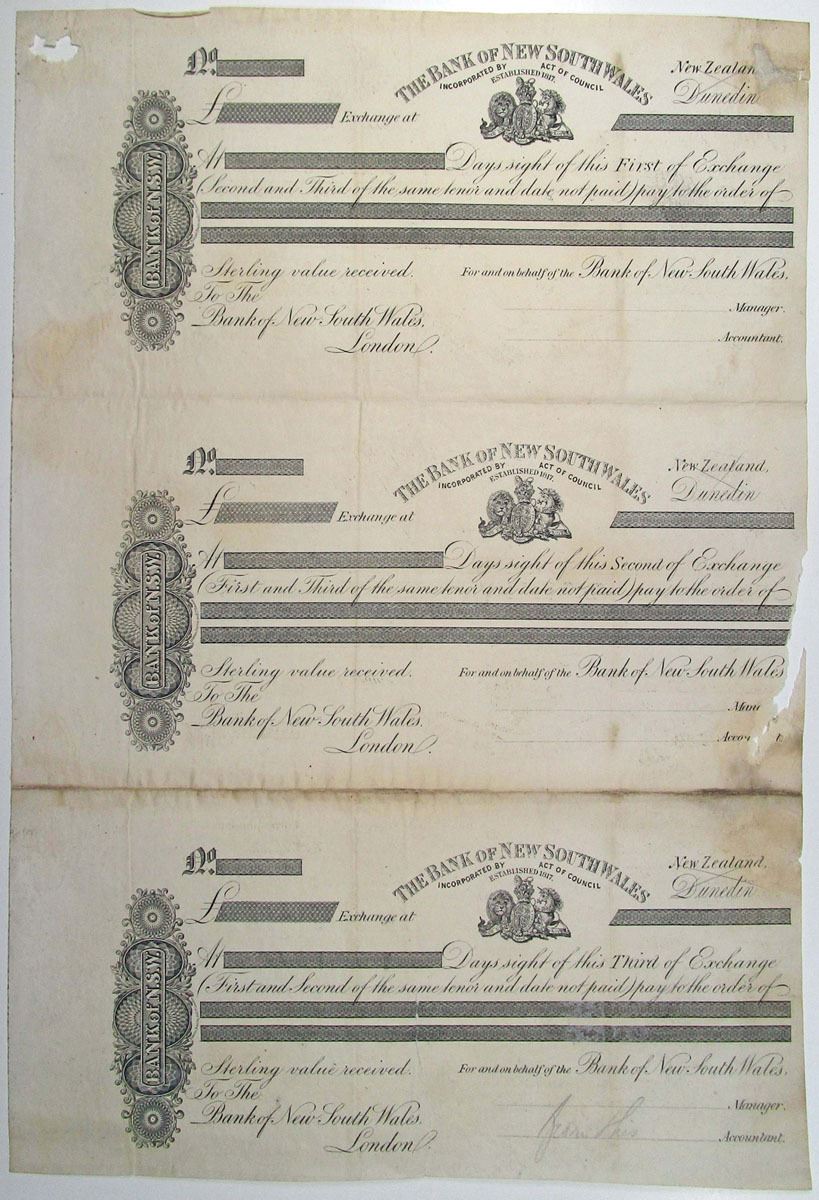 No.
THE BANK OF NEW SOUTH WALES
INCORPORATED BY ACT OF COUNCIL
ESTABLISHED 1817.
New Zealan
Dunedin
£ Exchange at
BANK of N.S.W.
At Days sight of this First of Exchange
(Second and Third of the same tenor and date not paid) pay to the order of
Sterling value received. For and on behalf of the Bank of New South Wales,
To The
Bank of New South Wales, Manager.
London. Accountant.
No.
THE BANK OF NEW SOUTH WALES
INCORPORATED BY ACT OF COUNCIL
ESTABLISHED 1817.
New Zealand,
Dunedin
£ Exchange at
BANK of N.S.W.
At Days sight of this Second of Exchange
(First and Third of the same tenor and date not paid) pay to the order of
Sterling value received. For and on behalf of the Bank of New South Wales
To The
Bank of New South Wales, Mana
London. Accoun t.
No.
THE BANK OF NEW SOUTH WALES
INCORPORATED BY ACT OF COUNCIL
ESTABLISHED 1817.
New Zealand,
Dunedin
£ Exchange at
BANK of N.S.W.
At Days sight of this Third of Exchange
(First and Second of the same tenor and date not paid) pay to the order of
Sterling value received. For and on behalf of the Bank of New South Wales,
To The
Bank of New South Wales, Manager.
London. Accountant.